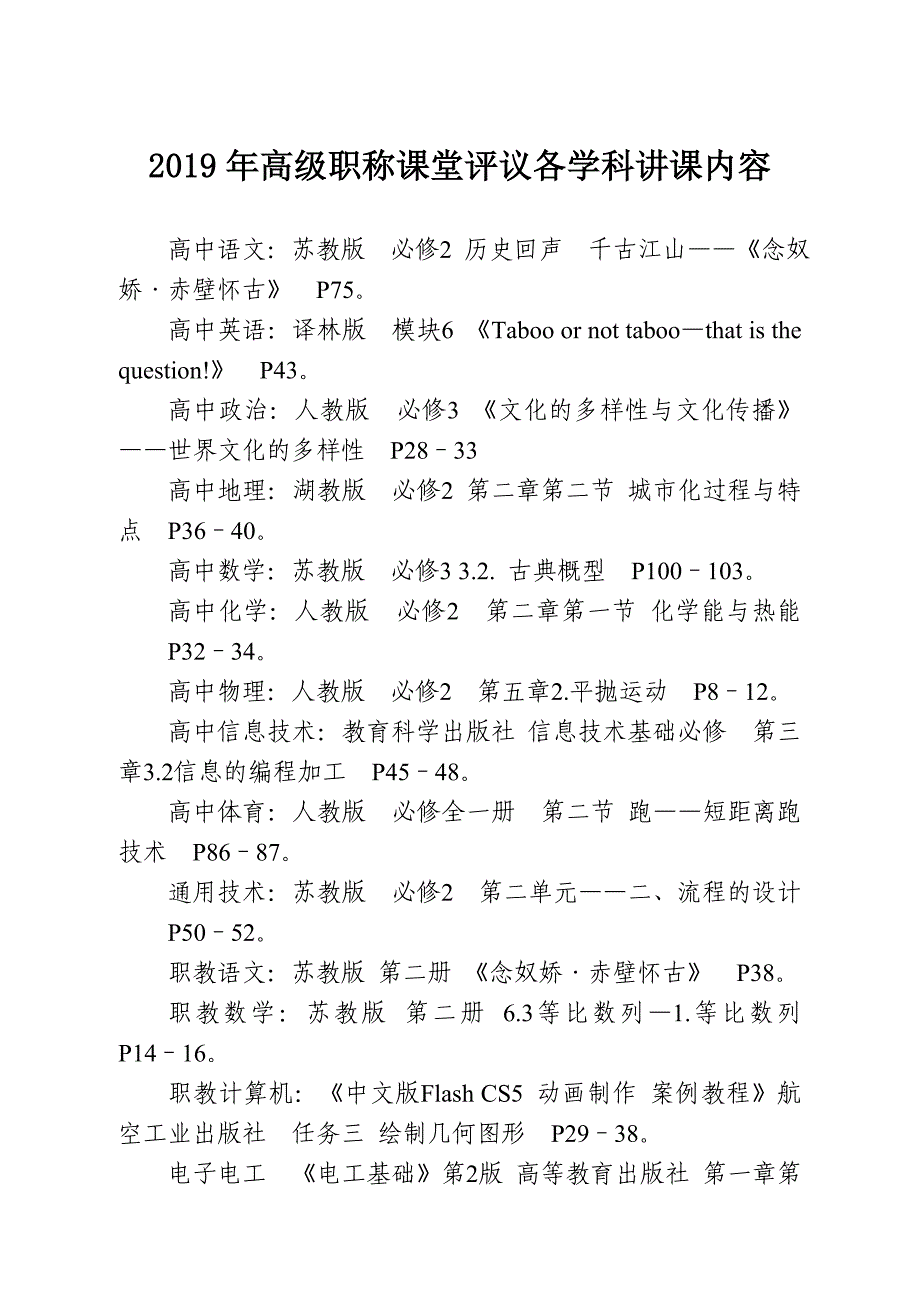 2019 年高级职称课堂评议各学科讲课内容
高中语文：苏教版　必修2 历史回声　千古江山——《念奴
娇·赤壁怀古》　P75。
高中英语：译林版　模块6 《Taboo or not taboo—that is the
question!》　P43。
高中政治：人教版　必修3 《文化的多样性与文化传播》
——世界文化的多样性　P28－33
高中地理：湖教版　必修2 第二章第二节 城市化过程与特
点　P36－40。
高中数学：苏教版　必修3 3.2. 古典概型　P100－103。
高中化学：人教版　必修2　第二章第一节 化学能与热能
P32－34。
高中物理：人教版　必修2　第五章2.平抛运动　P8－12。
高中信息技术：教育科学出版社 信息技术基础必修　第三
章3.2信息的编程加工　P45－48。
高中体育：人教版　必修全一册　第二节 跑——短距离跑
技术　P86－87。
通用技术：苏教版　必修2　第二单元——二、流程的设计
P50－52。
职教语文：苏教版 第二册 《念奴娇·赤壁怀古》　P38。
职教数学：苏教版 第二册 6.3等比数列—1.等比数列
P14－16。
职教计算机：《中文版Flash CS5 动画制作 案例教程》航
空工业出版社　任务三 绘制几何图形　P29－38。
电子电工　《电工基础》第2版 高等教育出版社 第一章第